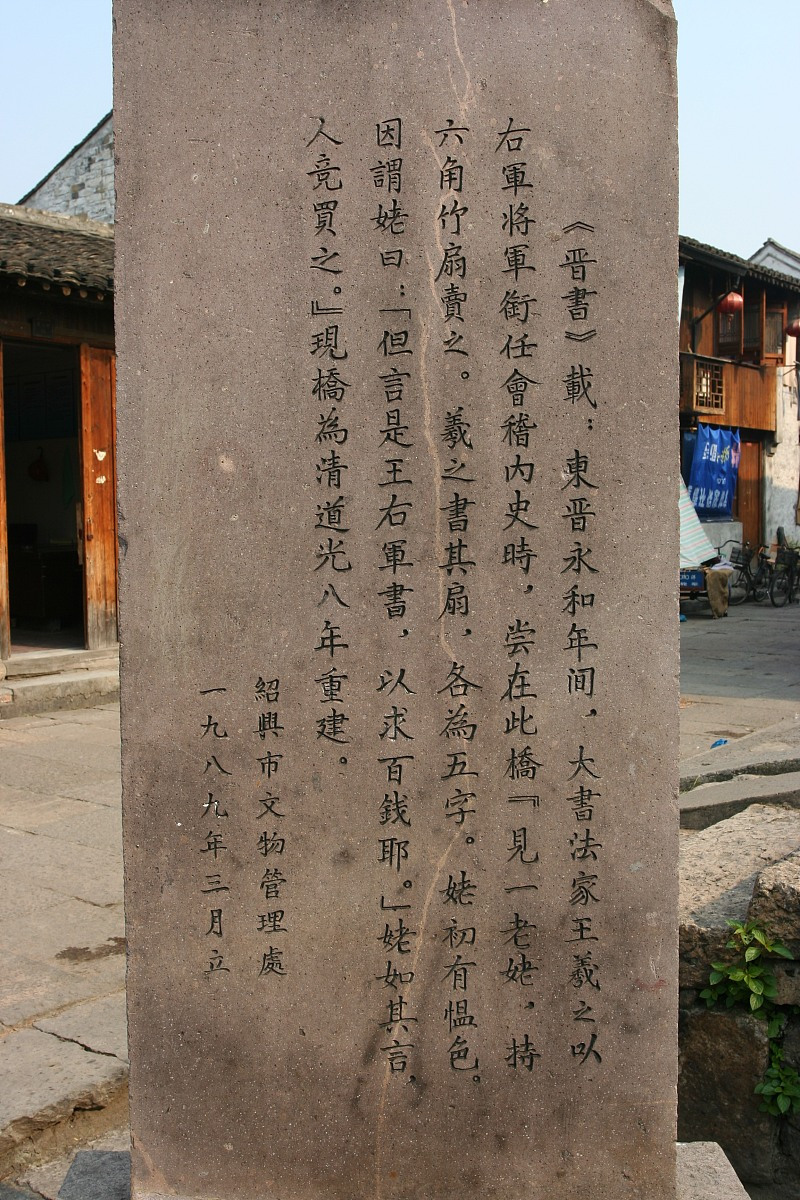 《晋書》載：東晋永和年间，大書法家王羲之以
右軍将軍銜任會稽内史時，尝在此橋『見一老姥，持
六角竹扇賣之。羲之書其扇，各為五字。姥初有愠色。
因謂姥曰：「但言是王右軍書，以求百銭耶。」姥如其言，
人竞買之。』現橋為清道光八年重建。
紹興市文物管理處
一九八九年三月立